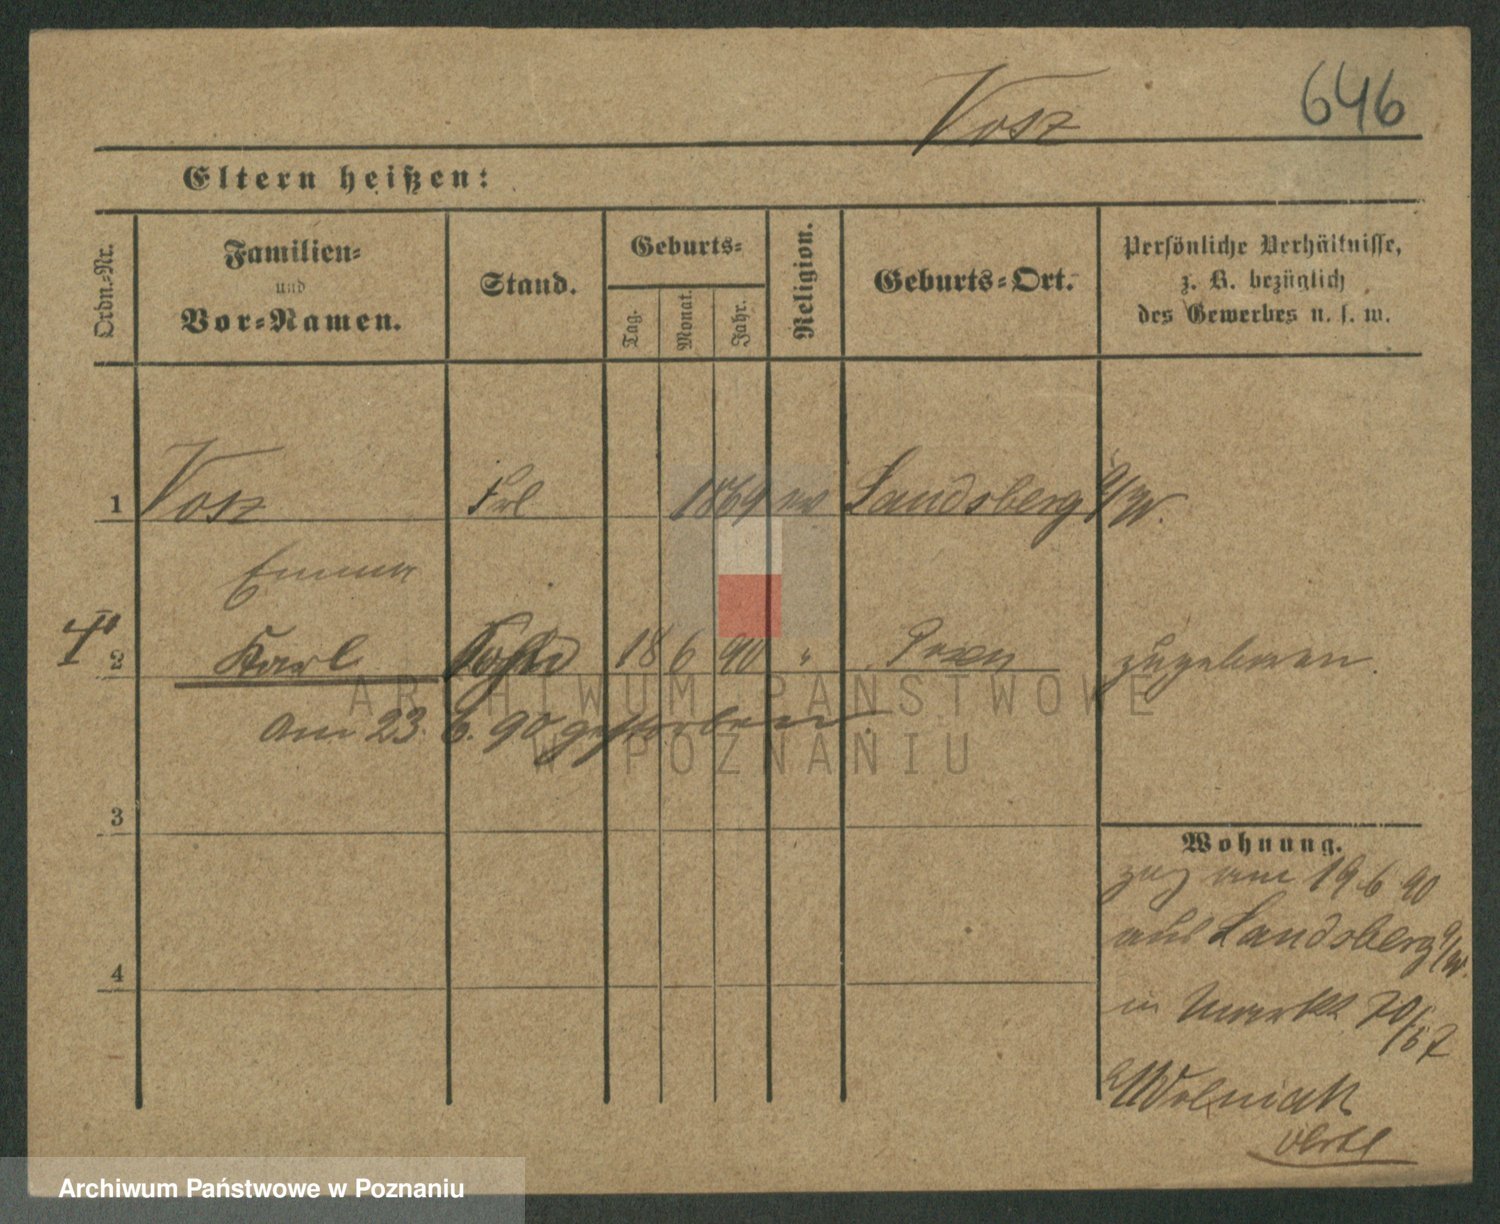 Vosz 646
Eltern heißen:
Ordn.-Nr.
Familien-
und
Vor-Namen.
Stand.
Geburts-
Tag.
Monat.
Jahr.
Religion.
Geburts-Ort.
Persönliche Verhältnisse,
z. B. bezüglich
des Gewerbes u. s. w.
1 Vosz Frl 1869 ev Landsberg a/W.
Emma
2 Karl Sohn 18 6 90 " Posen zugeboren.
am 23. 6. 90 gestorben.
3
Wohnung.
zug am 19 6 90
aus Landsberg a/W.
in Markt 70/67
4
Wolniak
ARCHIWUM PAŃSTWOWE
W POZNANIU
Archiwum Państwowe w Poznaniu